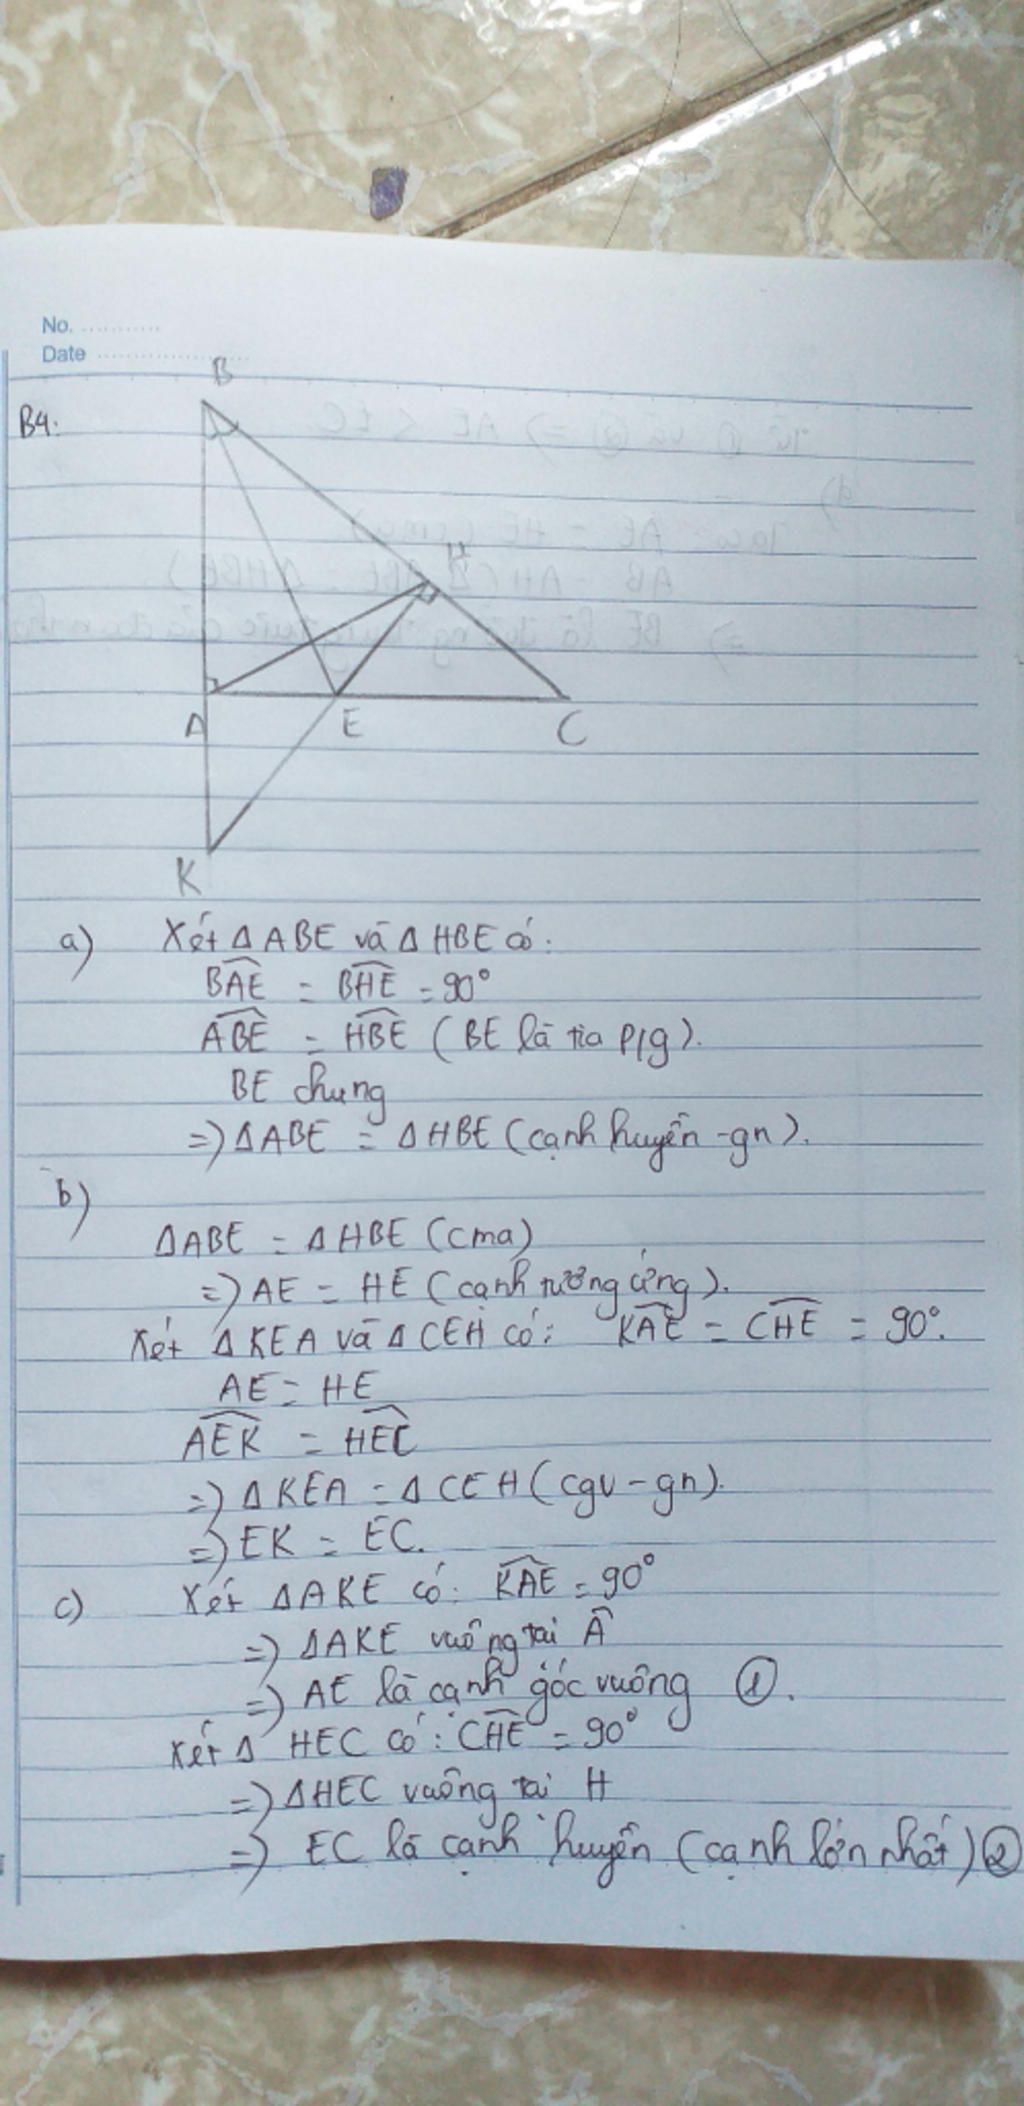 No. ............
Date ......................
B4:
B
H
A
E
C
K
a) Xét Δ ABE và Δ HBE có:
BAE = BHE = 90°
ABE = HBE (BE là tia p/g).
BE chung
=> ΔABE = ΔHBE (cạnh huyền - gn).
b)
ΔABE = ΔHBE (cma)
=> AE = HE (cạnh tương ứng).
Xét ΔKEA và ΔCEH có: KAE = CHE = 90°.
AE = HE
AEK = HEC
=> ΔKEA = ΔCEH (cgv - gn).
=> EK = EC.
c) Xét ΔAKE có: KAE = 90°
=> ΔAKE vuông tại A
=> AE là cạnh góc vuông ①.
Xét Δ HEC có: CHE = 90°
=> ΔHEC vuông tại H
=> EC là cạnh huyền (cạnh lớn nhất) ②